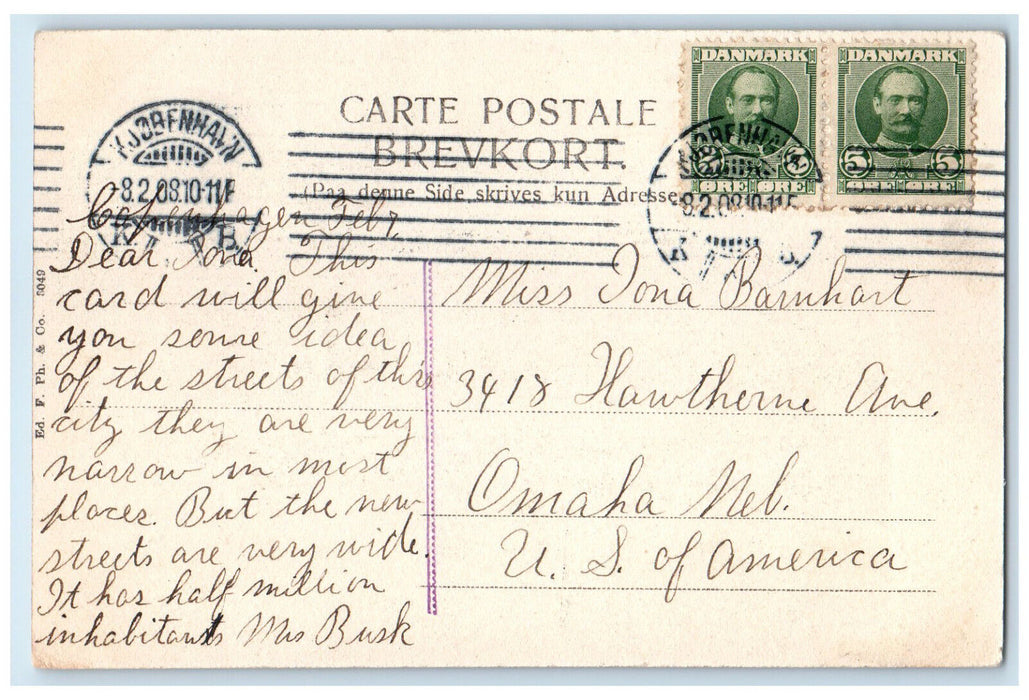 CARTE POSTALE
BREVKORT.
(Paa denne Side skrives kun Adresse
DANMARK
5 5
ØRE ØRE
DANMARK
5 5
ØRE ØRE
KJØBENHAVN
8.2.08.10-11F
K. B.
KJØBENHAVN
8.2.08.10-11F
K B.
Copenhagen Febr.
Dear Iona. This
card will give
you some idea
of the streets of this
city they are very
narrow in most
places. But the new
streets are very wide.
It has half million
inhabitants Mrs Busk
Miss Iona Barnhart
3418 Hawthorne Ave.
Omaha Neb.
U. S. of America
Ed. F. Ph. & Co. 3049